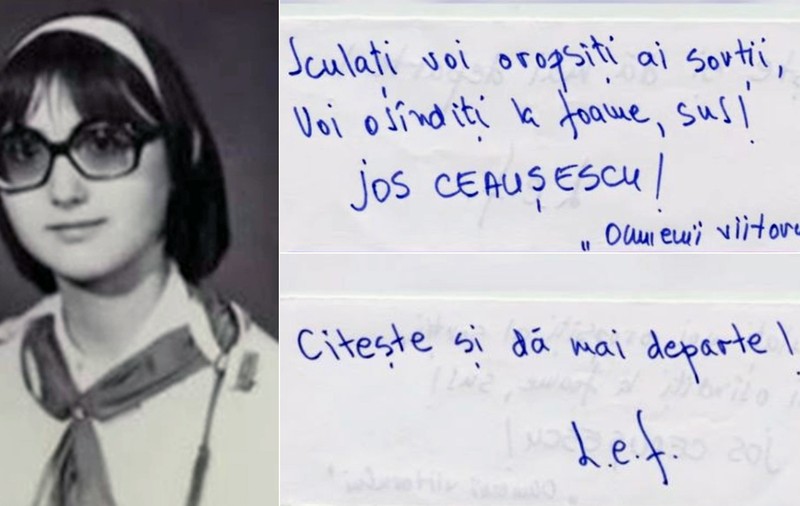 Sculați voi oropsiți ai sorții,
Voi osîndiți la foame, sus!
JOS CEAUȘESCU!
„Oamenii viitoru
Citește și dă mai departe!
L.e.f.